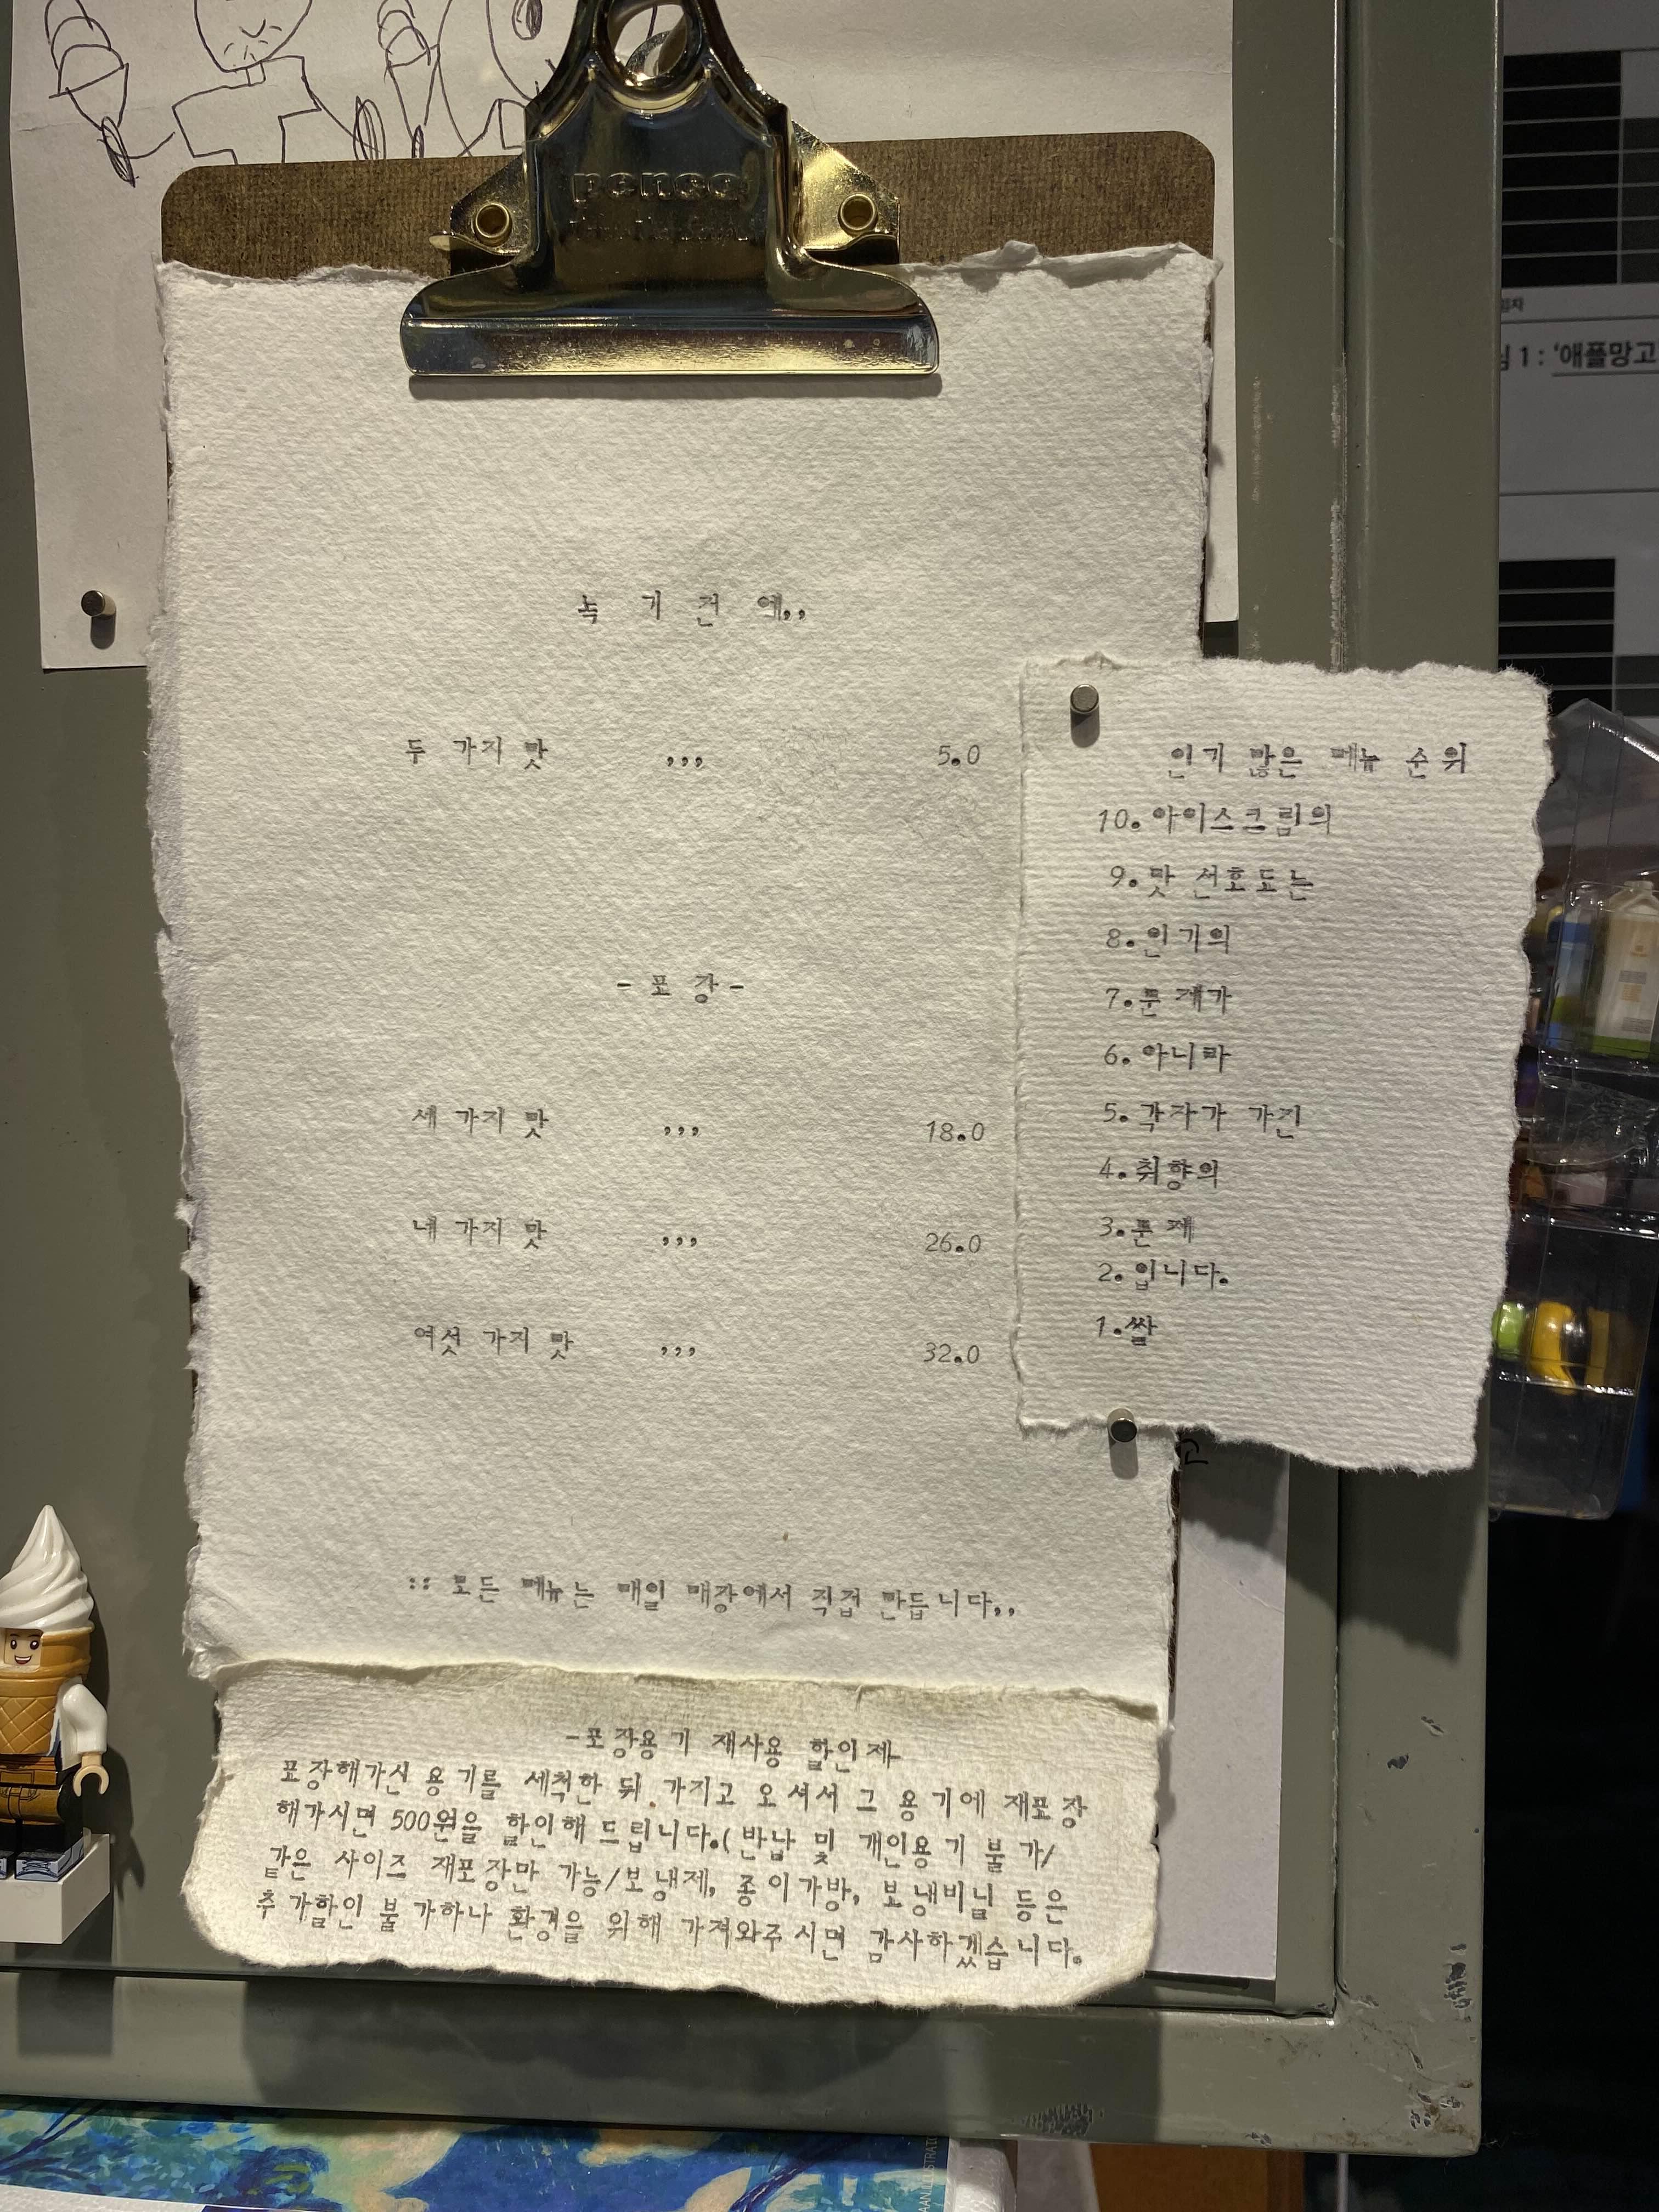 녹 기 전 에,,
두 가지 맛 ,,, 5.0
-포 장-
세 가지 맛 ,,, 18.0
네 가지 맛 ,,, 26.0
여섯 가지 맛 ,,, 32.0
:: 모든 메뉴는 매일 매장에서 직접 만듭니다,,
인기 많은 메뉴 순위
10.아이스크림의
9.맛 선호도는
8.인기의
7.문제가
6.아니라
5.각자가 가진
4.취향의
3.문제
2.입니다.
1.쌀
-포장용기 재사용 할인제-
포장해가신 용기를 세척한 뒤 가지고 오셔서 그 용기에 재포장
해가시면 500원을 할인해 드립니다.(반납 및 개인용기 불가/
같은 사이즈 재포장만 가능/보냉제, 종이가방, 보냉비닐 등은
추가할인 불가하나 환경을 위해 가져와주시면 감사하겠습니다.
1 : '애플망고